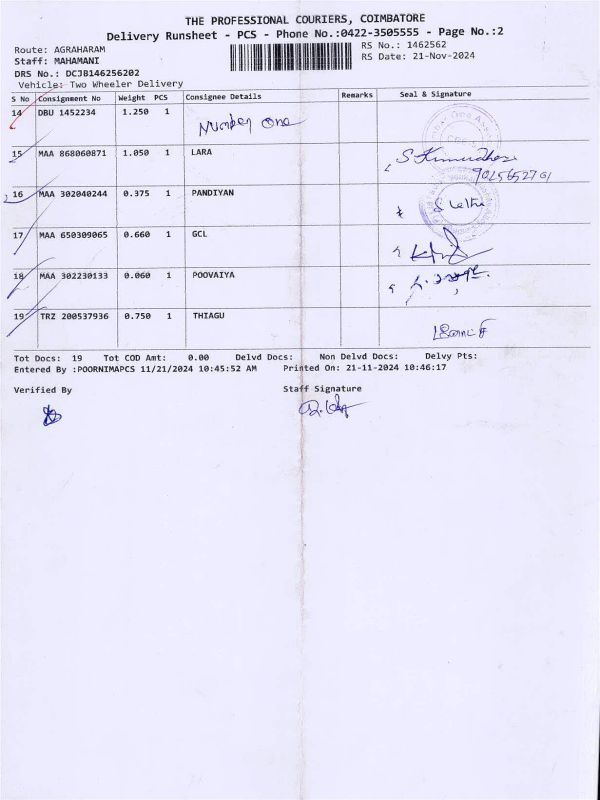 THE PROFESSIONAL COURIERS, COIMBATORE
Delivery Runsheet - PCS - Phone No.:0422-3505555 - Page No.:2
Route: AGRAHARAM
Staff: MAHAMANI
DRS No.: DCJB146256202
Vehicle: Two Wheeler Delivery
RS No.: 1462562
RS Date: 21-Nov-2024
S No Consignment No Weight PCS Consignee Details Remarks Seal & Signature
14 DBU 1452234 1.250 1 Number One
15 MAA 868060871 1.050 1 LARA
16 MAA 302040244 0.375 1 PANDIYAN
17 MAA 650309065 0.660 1 GCL
18 MAA 302230133 0.060 1 POOVAIYA
19 TRZ 200537936 0.750 1 THIAGU
Tot Docs: 19 Tot COD Amt: 0.00 Delvd Docs: Non Delvd Docs: Delvy Pts:
Entered By :POORNIMAPCS 11/21/2024 10:45:52 AM Printed On: 21-11-2024 10:46:17
Verified By Staff Signature